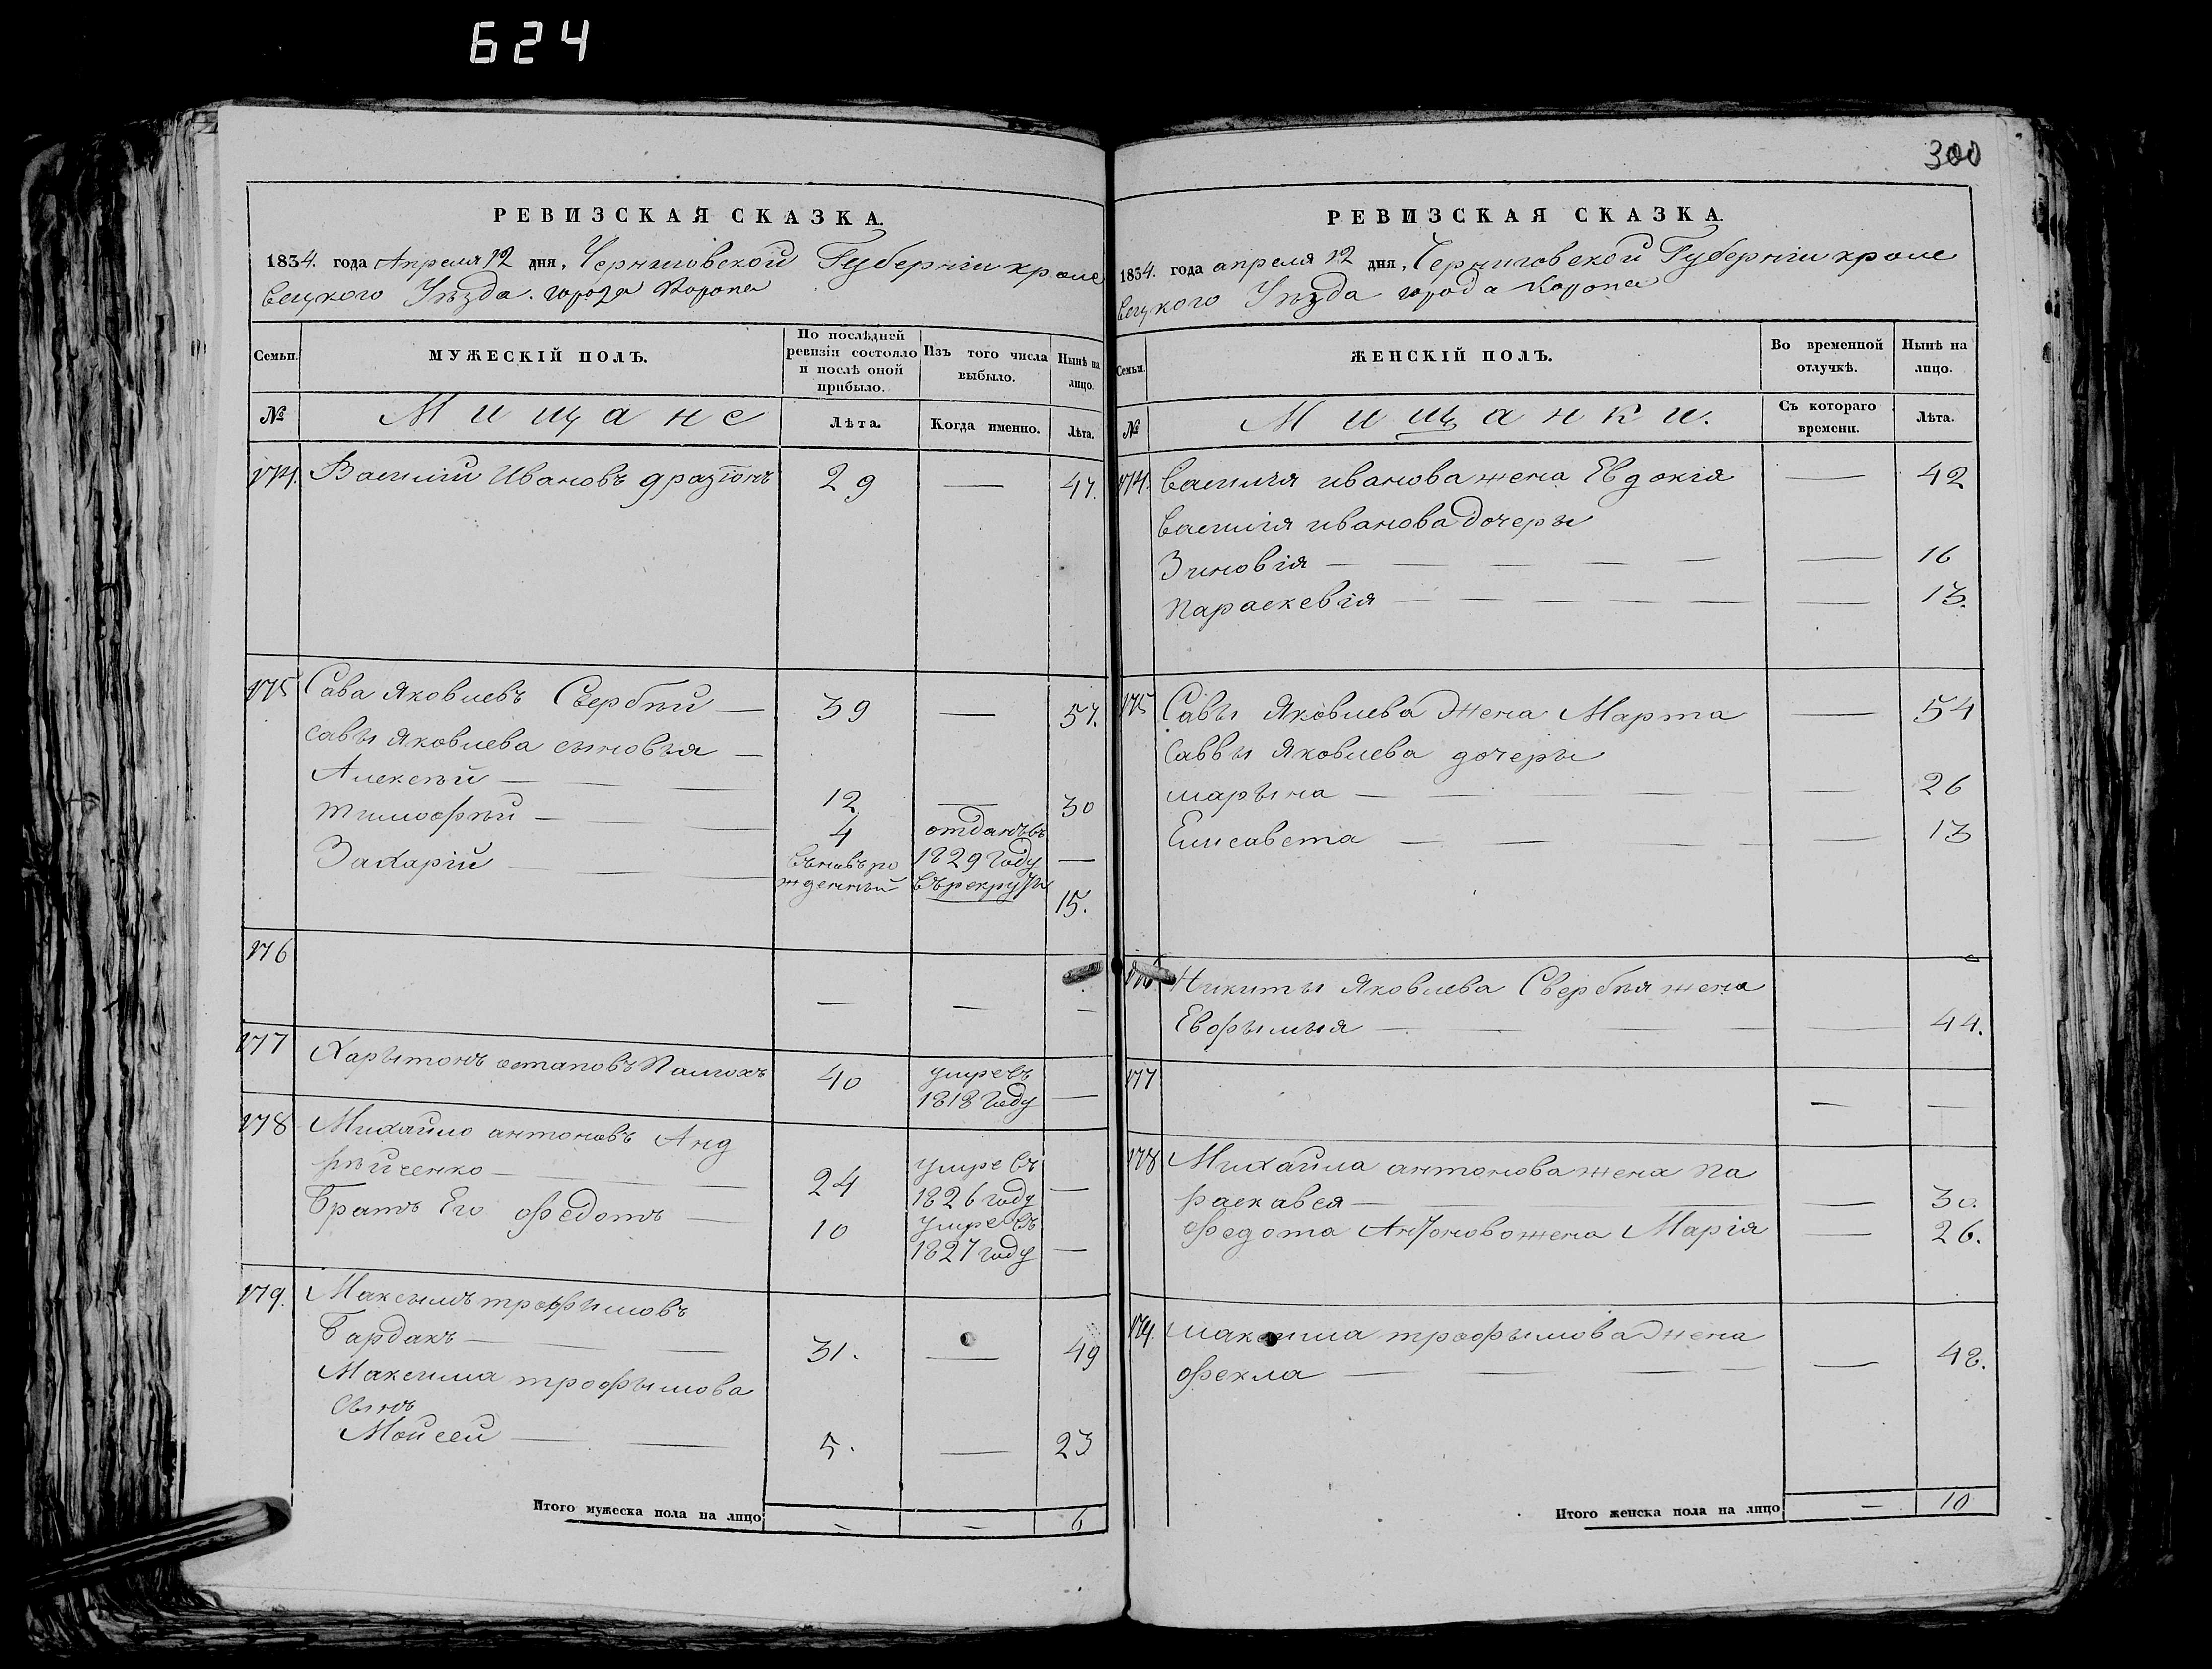 624
РЕВИЗСКАЯ СКАЗКА.
1834. года Апреля 12 дня, Черниговской Губерніи кроле
вецкого Уѣзда. города Коропа
Семьи.
МУЖЕСКІЙ ПОЛЪ.
По послѣдней ревизіи состояло и послѣ оной прибыло.
Изъ того числа выбыло.
Нынѣ на лицо.
№
Мищане
Лѣта.
Когда именно.
Лѣта.
174. Василій Ивановъ 29 — 47.
175 Сава Яковлевъ Свербѣй — 39 — 57.
савы Яковлева сыновья —
Алексѣй — 12 — 30
тимофѣй — 4 отданъ въ 1829 году въ рекруты —
Захарій — вновь рожденный 15.
176 — — —
177 Харытонъ остаповъ 40 умре въ 1818 году —
178 Михайло антоновъ Анд
рѣйченко — 24 умре въ 1826 году —
Братъ Его Федотъ — 10 умре въ 1827 году —
179. Максымъ трофымовъ
Бардакъ — 31. — 49
Максима трофымова
сынъ
Мойсей — 5. — 23
Итого мужеска пола на лицо — — 6
300
РЕВИЗСКАЯ СКАЗКА.
1834. года апреля 12 дня, Черниговской Губерніи кроле
вецкого Уѣзда города Коропа
Семьи.
ЖЕНСКІЙ ПОЛЪ.
Во временной отлучкѣ.
Нынѣ на лицо.
№
Мищанки.
Съ котораго времени.
Лѣта.
174. Василия иванова жена Евдокія — 42
Василия иванова дочеры
Зиновія — 16
параскевія — 13.
175 Савы Яковлева жена Марта — 54
саввы Яковлева дочеры
марына — 26
Елисавета — 13
176 Никиты Яковлева Свербѣя жена
Евфымыя — 44.
177 — —
178 Михайла антонова жена па
раскавея — 30.
Федота Антонова жена Марія — 26.
179. максима трофымова жена
Фекла — 48.
Итого женска пола на лицо — 10